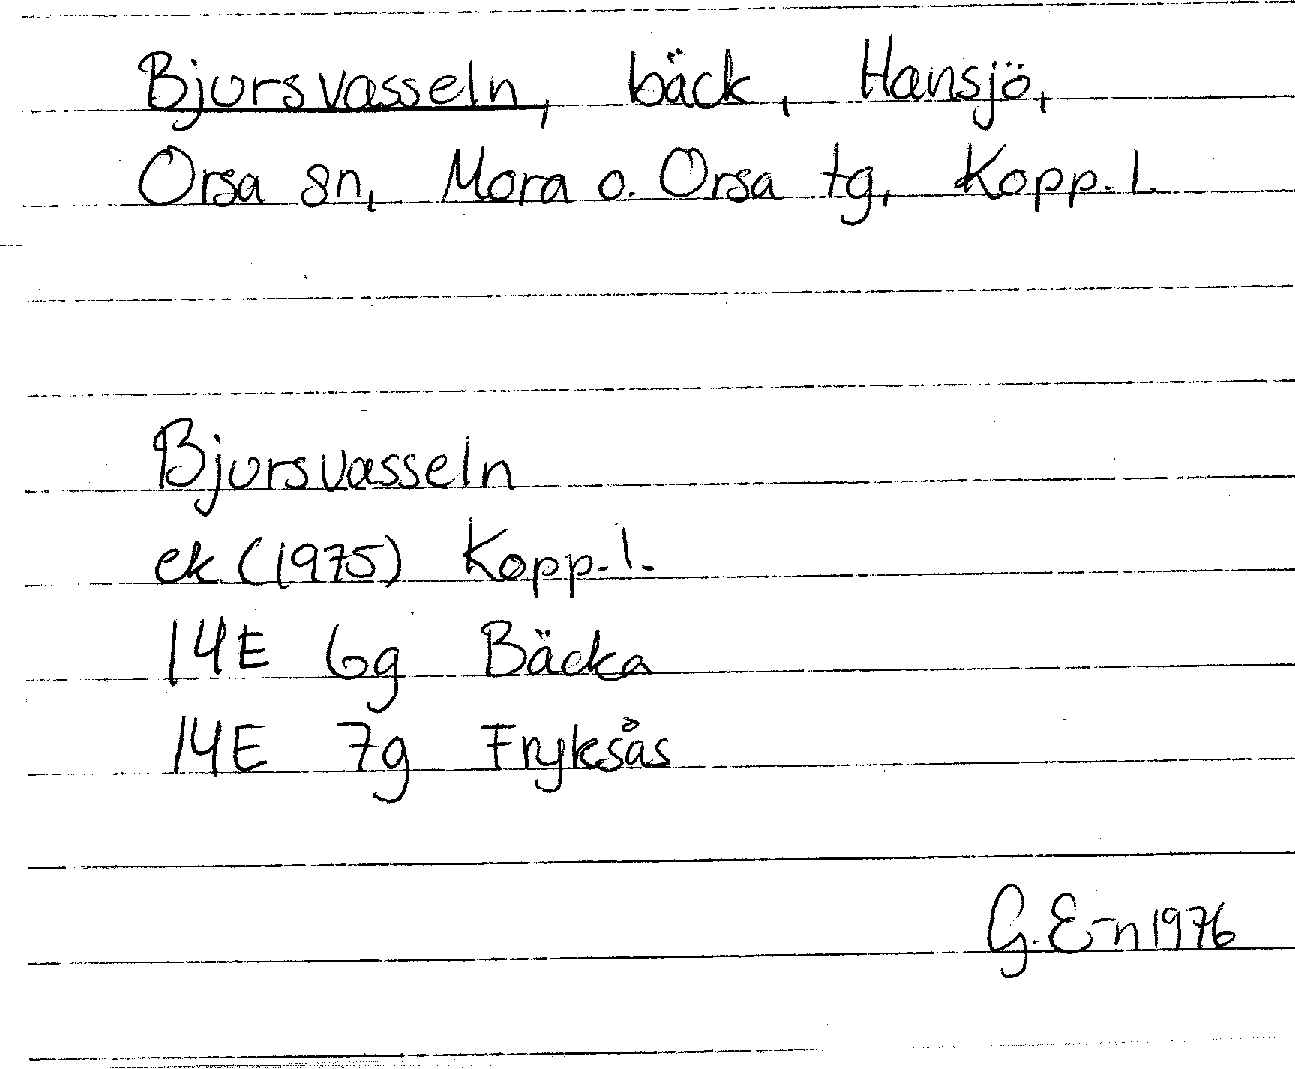 Bjursvasseln, bäck, Hansjö,
Orsa sn, Mora o. Orsa tg, Kopp. l.
Bjursvasseln
ek (1975) Kopp. l.
14E 6g Bäcka
14E 7g Fryksås
G. E-n 1976